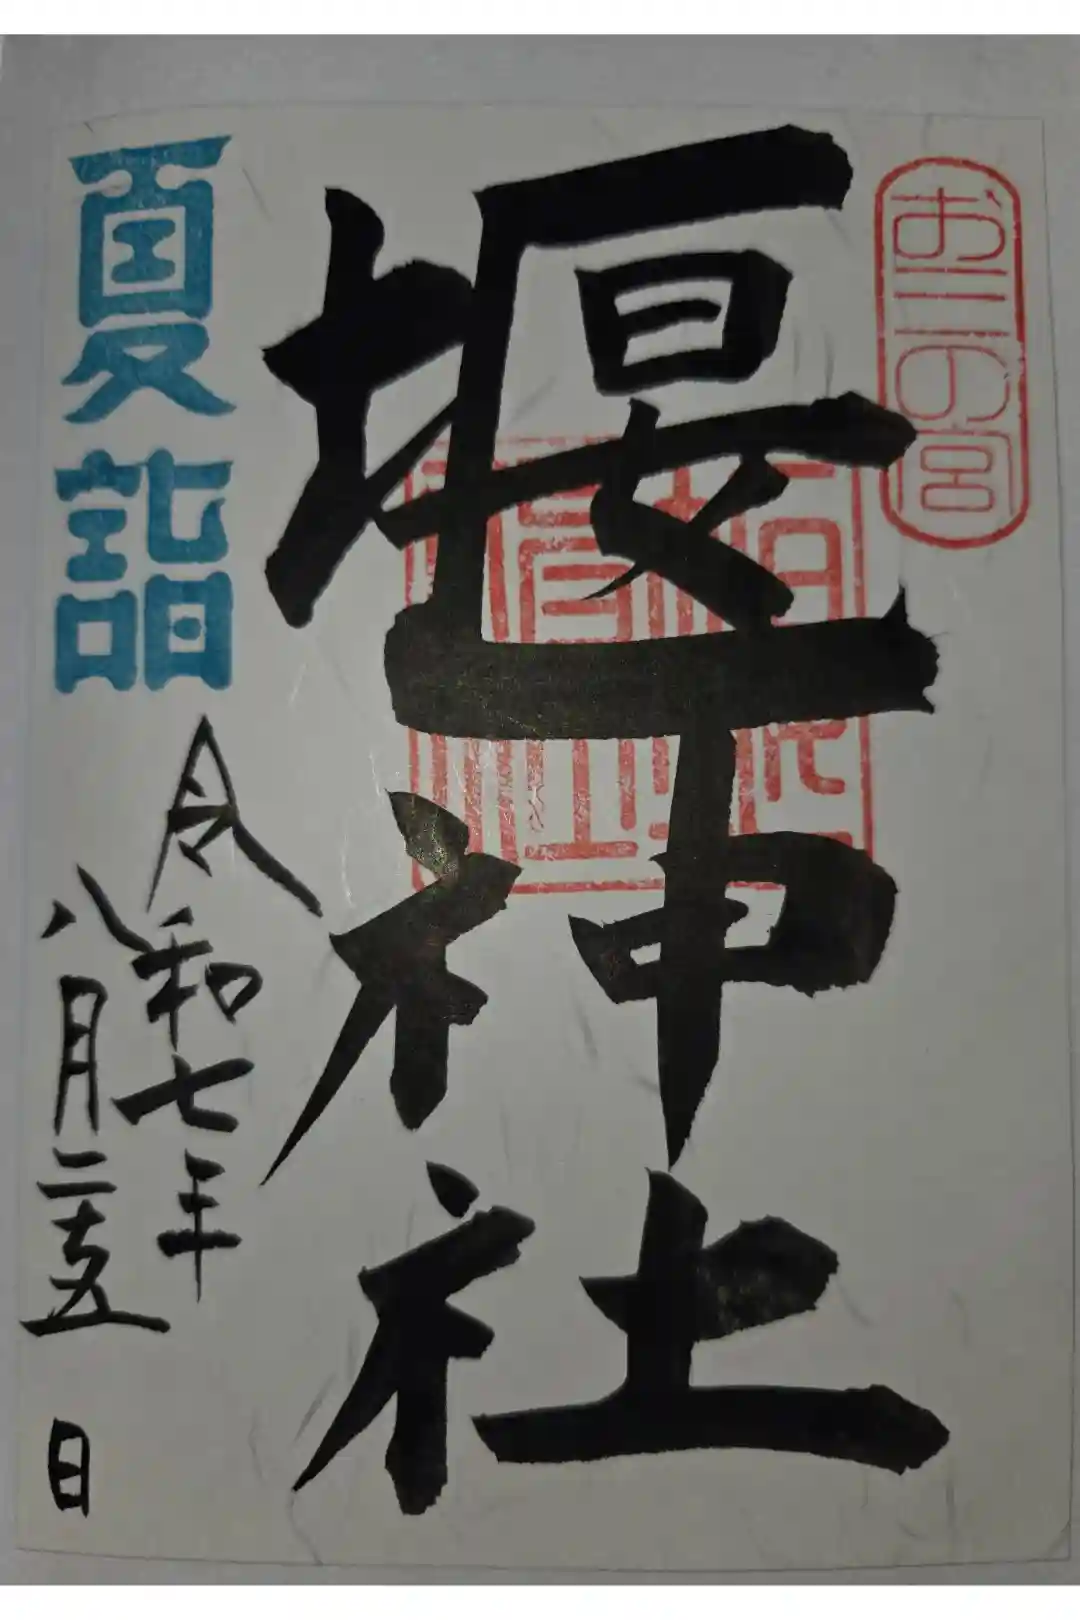 お三の宮
堰神社
夏詣
令和七年
八月二十五日